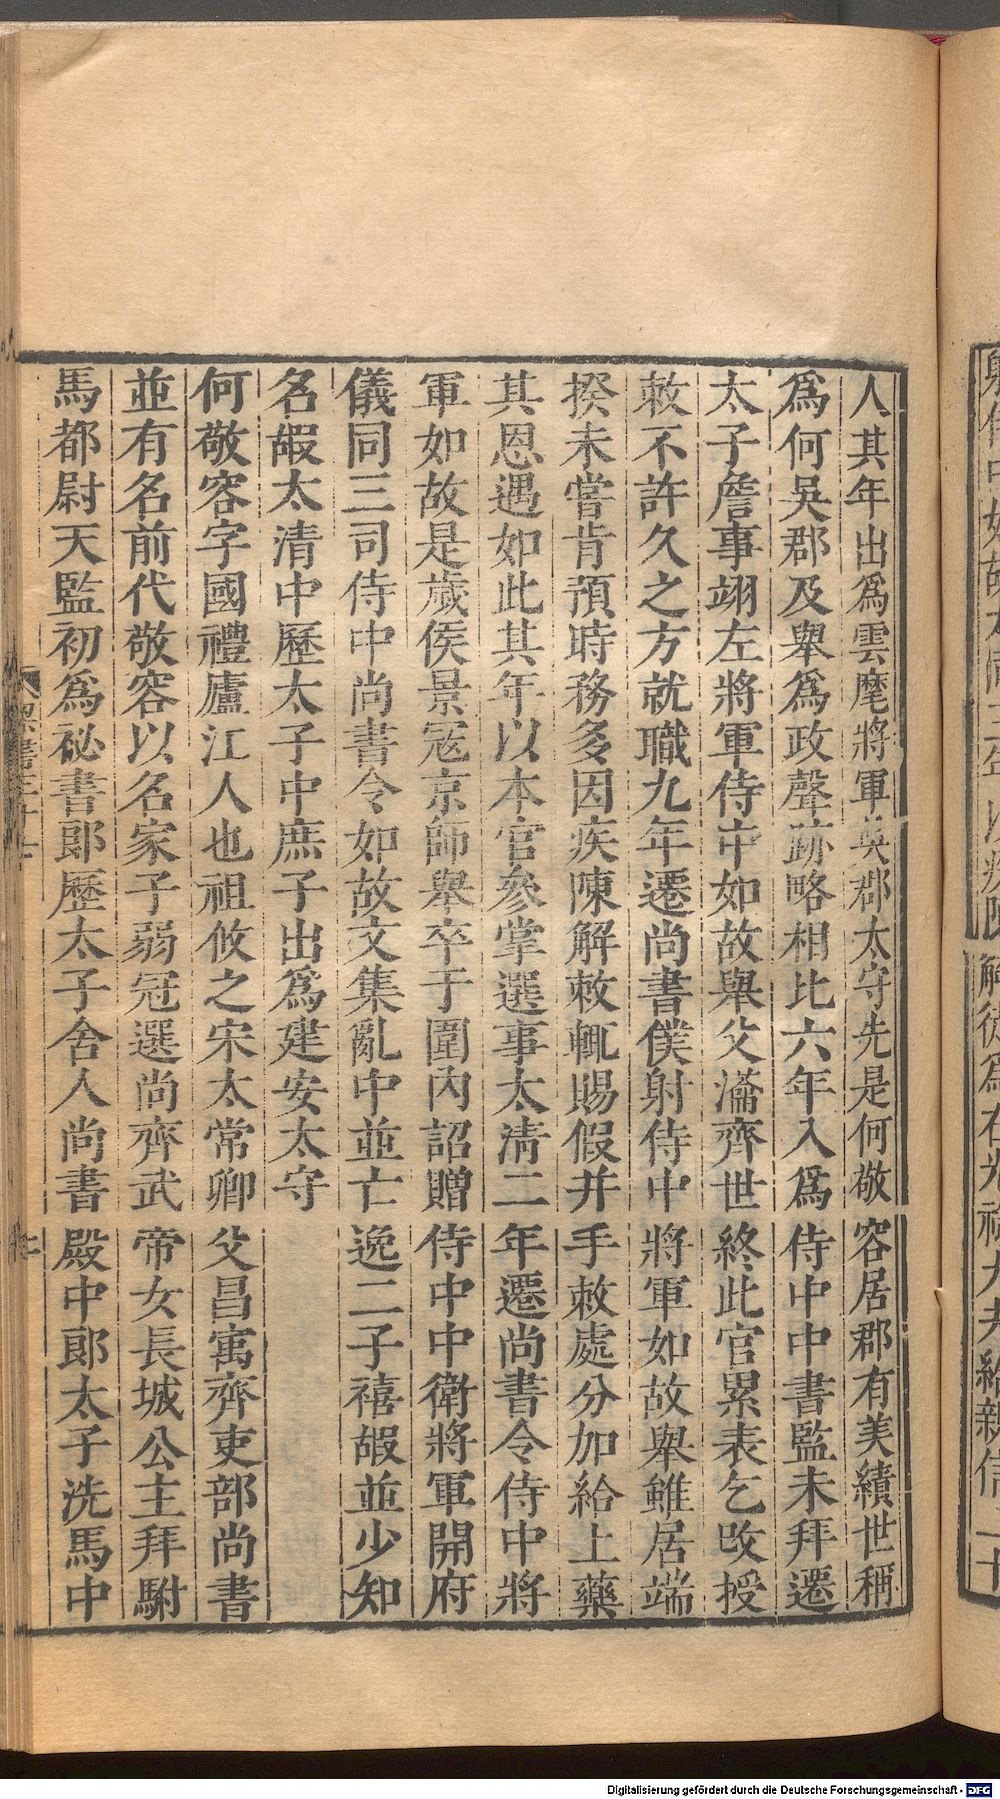 人其年出爲雲麾將軍吳郡太守先是何敬容居郡有美績世稱
爲何吳郡及舉爲政聲跡略相比六年入爲侍中中書監未拜遷
太子詹事翊左將軍侍中如故舉父瀹齊世終此官累表乞改授
敕不許久之方就職九年遷尚書僕射侍中將軍如故舉雖居端
揆未嘗肯預時務多因疾陳解敕輒賜假并手敕處分加給上藥
其恩遇如此其年以本官參掌選事太清二年遷尚書令侍中將
軍如故是歲侯景寇京師舉卒于圍內詔贈侍中中衛將軍開府
儀同三司侍中尚書令如故文集亂中並亡逸二子禧嘏並少知
名嘏太清中歷太子中庶子出爲建安太守
何敬容字國禮廬江人也祖攸之宋太常卿父昌寓齊吏部尚書
並有名前代敬容以名家子弱冠選尚齊武帝女長城公主拜駙
馬都尉天監初爲祕書郎歷太子舍人尚書殿中郎太子洗馬中
Digitalisierung gefördert durch die Deutsche Forschungsgemeinschaft - DFG